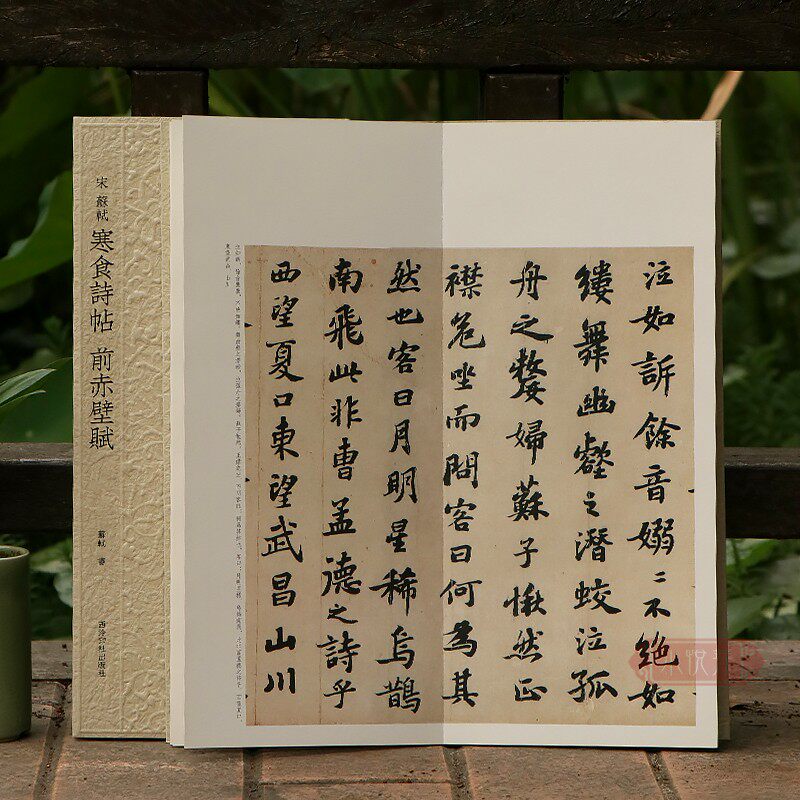 宋 蘇軾 寒食詩帖 前赤壁賦
蘇軾 書
西泠印社出版社
泣如訴餘音嫋〻不絶如
縷舞幽壑之潛蛟泣孤
舟之嫠婦蘇子愀然正
襟危坐而問客曰何為其
然也客曰月明星稀烏鵲
南飛此非曹孟德之詩乎
西望夏口東望武昌山川